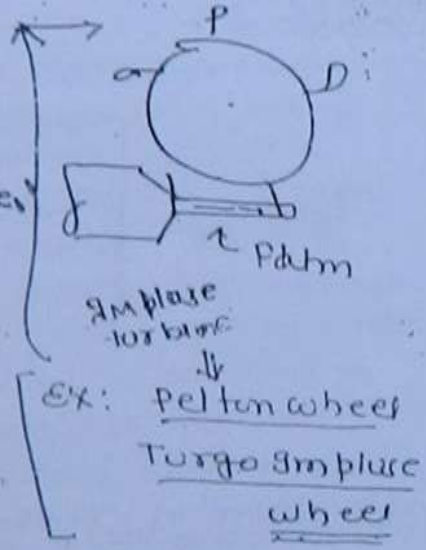 P
D
Patm
Impluse
turbine
Ex: Pelton wheel
Turgo Impluse
wheel